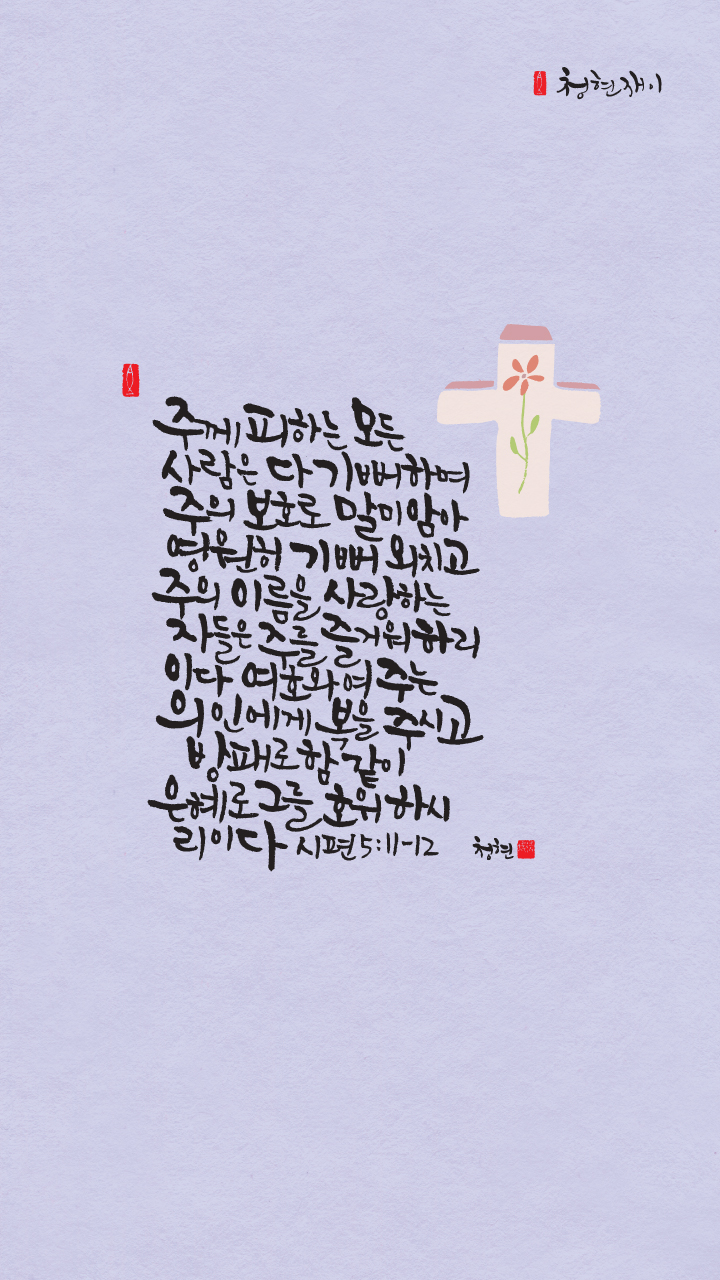 청현재이
주께 피하는 모든
사람은 다 기뻐하며
주의 보호로 말미암아
영원히 기뻐 외치고
주의 이름을 사랑하는
자들은 주를 즐거워하리
이다 여호와여 주는
의인에게 복을 주시고
방패로 함 같이
은혜로 그를 호위 하시
리이다 시편 5:11-12 청현